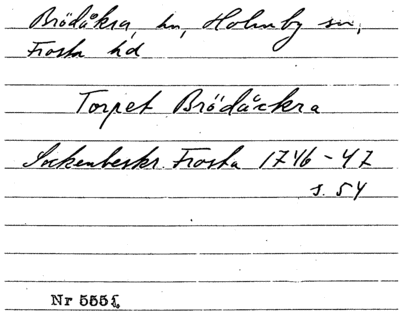 Brödåkra, hn, Holmby sn,
Frosta hd
Torpet Brödåckra
Sockenbeskr. Frosta 1746-47
s. 54
Nr 555